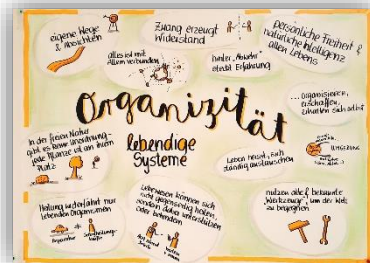 eigene Wege
& Absichten
Zwang erzeugt
Widerstand
persönliche Freiheit &
natürliche Intelligenz
allen Lebens
alles ist mit
Allem verbunden
hinter „Abwehr"
steckt Erfahrung
Organizität
... organisieren,
erschaffen,
erhalten sich selbst
In der freien Natur
gibt es keine Unordnung –
jede Pflanze ist an ihrem
Platz
lebendige
Systeme
UMGEBUNG
Leben heisst, sich
ständig austauschen
Heilung widerfährt nur
lebenden Organismen
Reparatur
Selbstheilungs-
kräfte
Lebewesen können sich
nicht gegenseitig heilen,
sondern dabei unterstützen
oder behindern
nutzen alte & bekannte
„Werkzeuge", um der Welt
zu begegnen